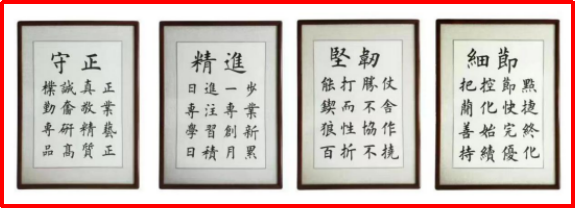 守正
樸誠真正
勤奮敬業
專研精藝
品高質正
精進
日進一步
專注專業
學習創新
日積月累
堅韌
能打勝仗
鍥而不舍
狼性協作
百折不撓
細節
把控節點
蘭化快捷
善始完終
持續優化